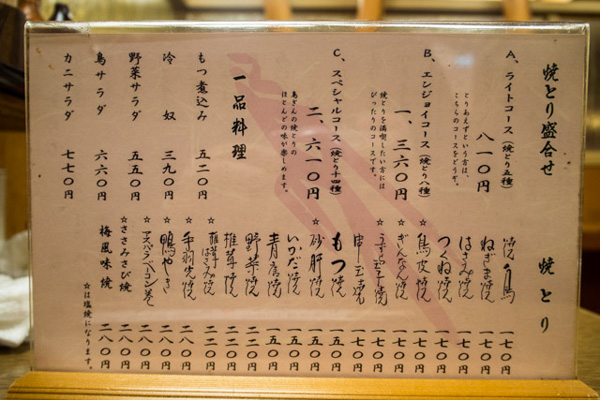 焼とり盛合せ
A、ライトコース(焼とり五種)
とりあえずという方は、
こちらのコースをどうぞ。
八一〇円
B、エンジョイコース(焼とり八種)
焼とりを満喫したい方には
ぴったりのコースです。
一、三六〇円
C、スペシャルコース(焼とり十四種)
鳥ぎんの焼とりの
ほとんどの味が楽しめます。
二、六一〇円
一品料理
もつ煮込み 五二〇円
冷奴 三九〇円
野菜サラダ 五五〇円
鳥サラダ 六六〇円
カニサラダ 七七〇円
焼とり
一七〇円
ねぎま焼 一七〇円
はさみ焼 一七〇円
つくね焼 一七〇円
☆鳥皮焼 一七〇円
☆ぎんなん焼 一七〇円
☆うずら玉子焼 一七〇円
申玉焼 一七〇円
もつ焼 一五〇円
☆砂肝焼 一五〇円
いかだ焼 一五〇円
青唐焼 一五〇円
野菜焼 二二〇円
椎茸焼 二二〇円
☆椎茸はさみ焼 二二〇円
☆手羽先焼 二八〇円
☆鴨やき 二八〇円
☆アスパラベーコン巻 二八〇円
☆ささみさび焼 二八〇円
梅風味焼 二八〇円
☆は塩焼になります。